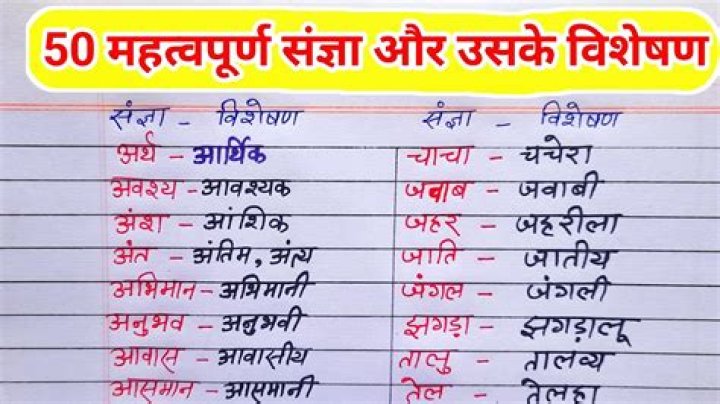 50 महत्वपूर्ण संज्ञा और उसके विशेषण
संज्ञा - विशेषण
अर्थ - आर्थिक
अवश्य - आवश्यक
अंश - आंशिक
अंत - अंतिम, अंत्य
अभिमान - अभिमानी
अनुभव - अनुभवी
आवास - आवासीय
आसमान - आसमानी
संज्ञा - विशेषण
चाचा - चचेरा
जवाब - जवाबी
जहर - जहरीला
जाति - जातीय
जंगल - जंगली
झगड़ा - झगड़ालू
तालु - तालव्य
तेल - तेलहा